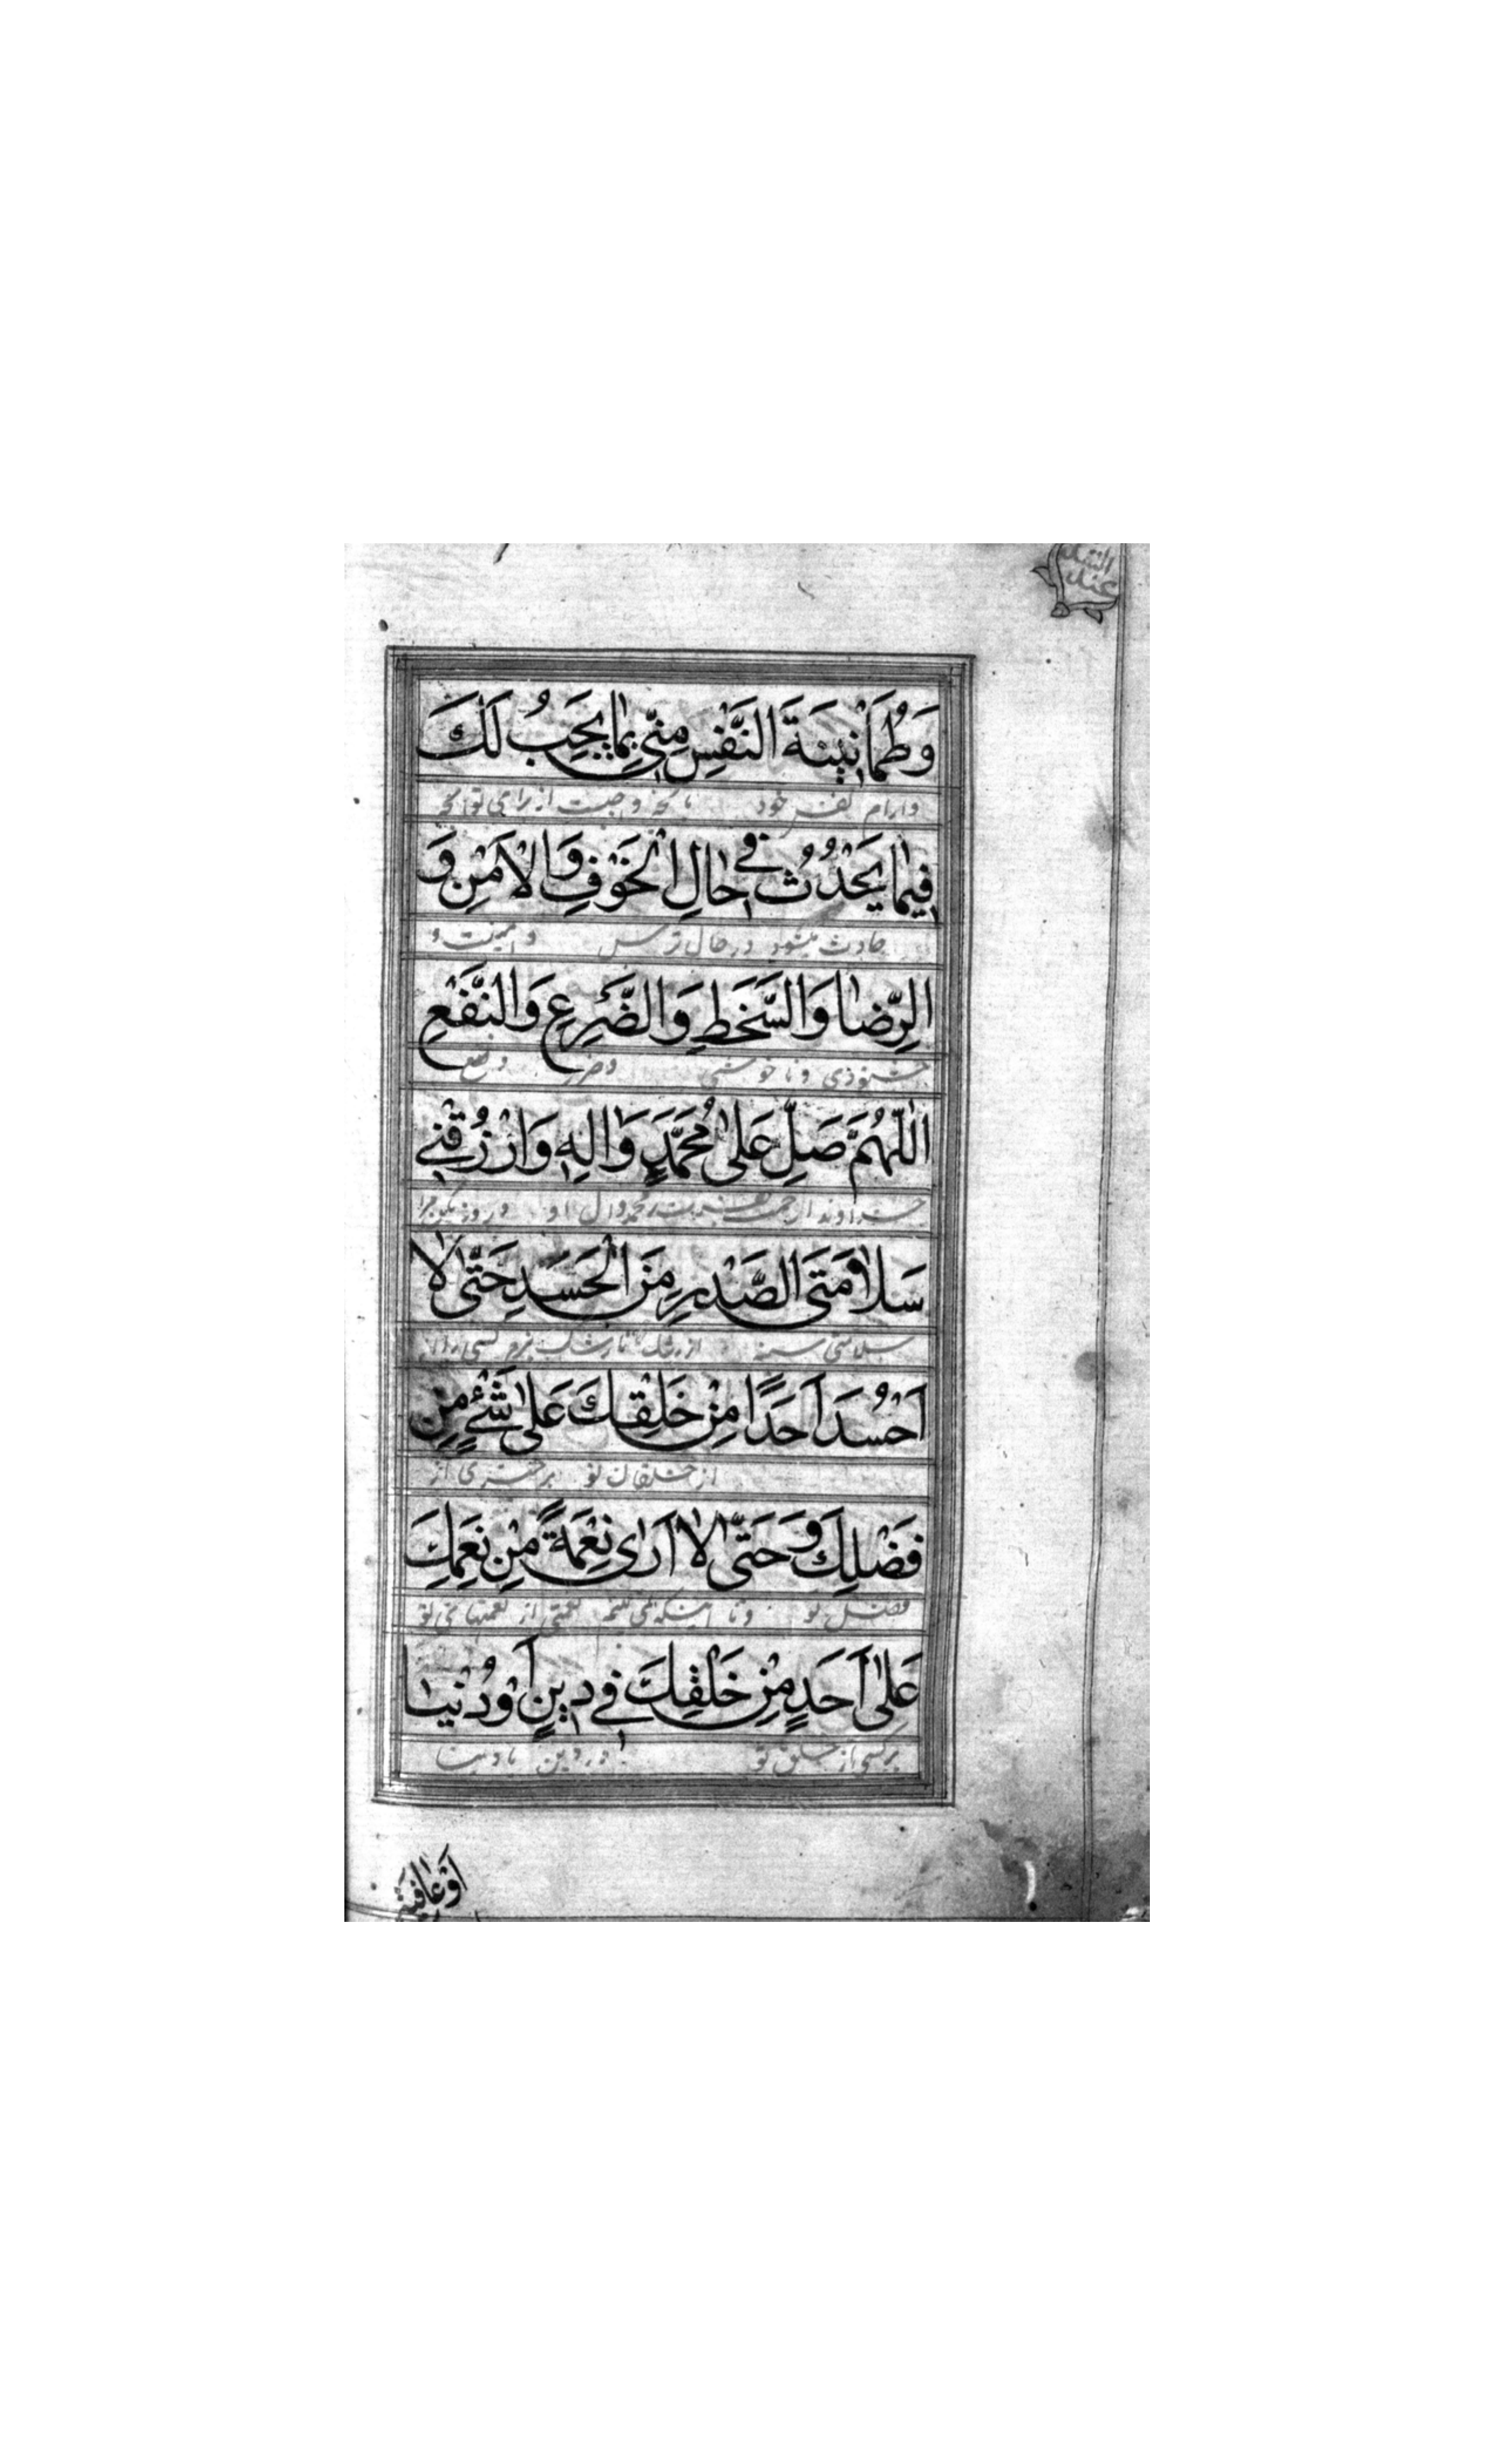 عند الشدة
وَطُمَانِينَةَ النَّفْسِ مِنّي بِمٰا يَجِبُ لَكَ
وارام نفس خود بانچه واجبست از برای تو انچه
فِيمٰا يَحْدُثُ فِي حٰالِ الْخَوْفِ وَالْاَمْنِ وَ
حادث میشود در حال ترس و امنیت و
الرِّضٰا وَالسَّخَطِ وَالضَّرِعِ وَالنَّفْعِ
خشنودی و ناخوشی وضرر و نفع
اَللّٰهُمَّ صَلِّ عَلىٰ مُحَمَّدٍ وَاٰلِهِ وَارْزُقْنِي
خداوندا رحمت بفرست محمد وال او و روزی کن مرا
سَلاٰمَتَى الصَّدْرِ مِنَ الْحَسَدِ حَتّٰى لاٰ
سلامتی سینه از رشک تا رشک نبرم کسی را
اَحْسُدَ اَحَدًا مِنْ خَلْقِكَ عَلىٰ شَيْءٍ مِنْ
از خلقان تو بر چیزی از
فَضْلِكَ وَحَتّٰى لاٰ اَرٰى نِعْمَةً مِنْ نِعَمِكَ
فضل تو و تا اینکه نمی بینم نعمتی از نعمتهای تو
عَلىٰ اَحَدٍ مِنْ خَلْقِكَ فِي دِينٍ اَوْ دُنْيٰا
بر کسی از خلق تو در دین یا دنیا
اَوْ عٰافِيَةٍ